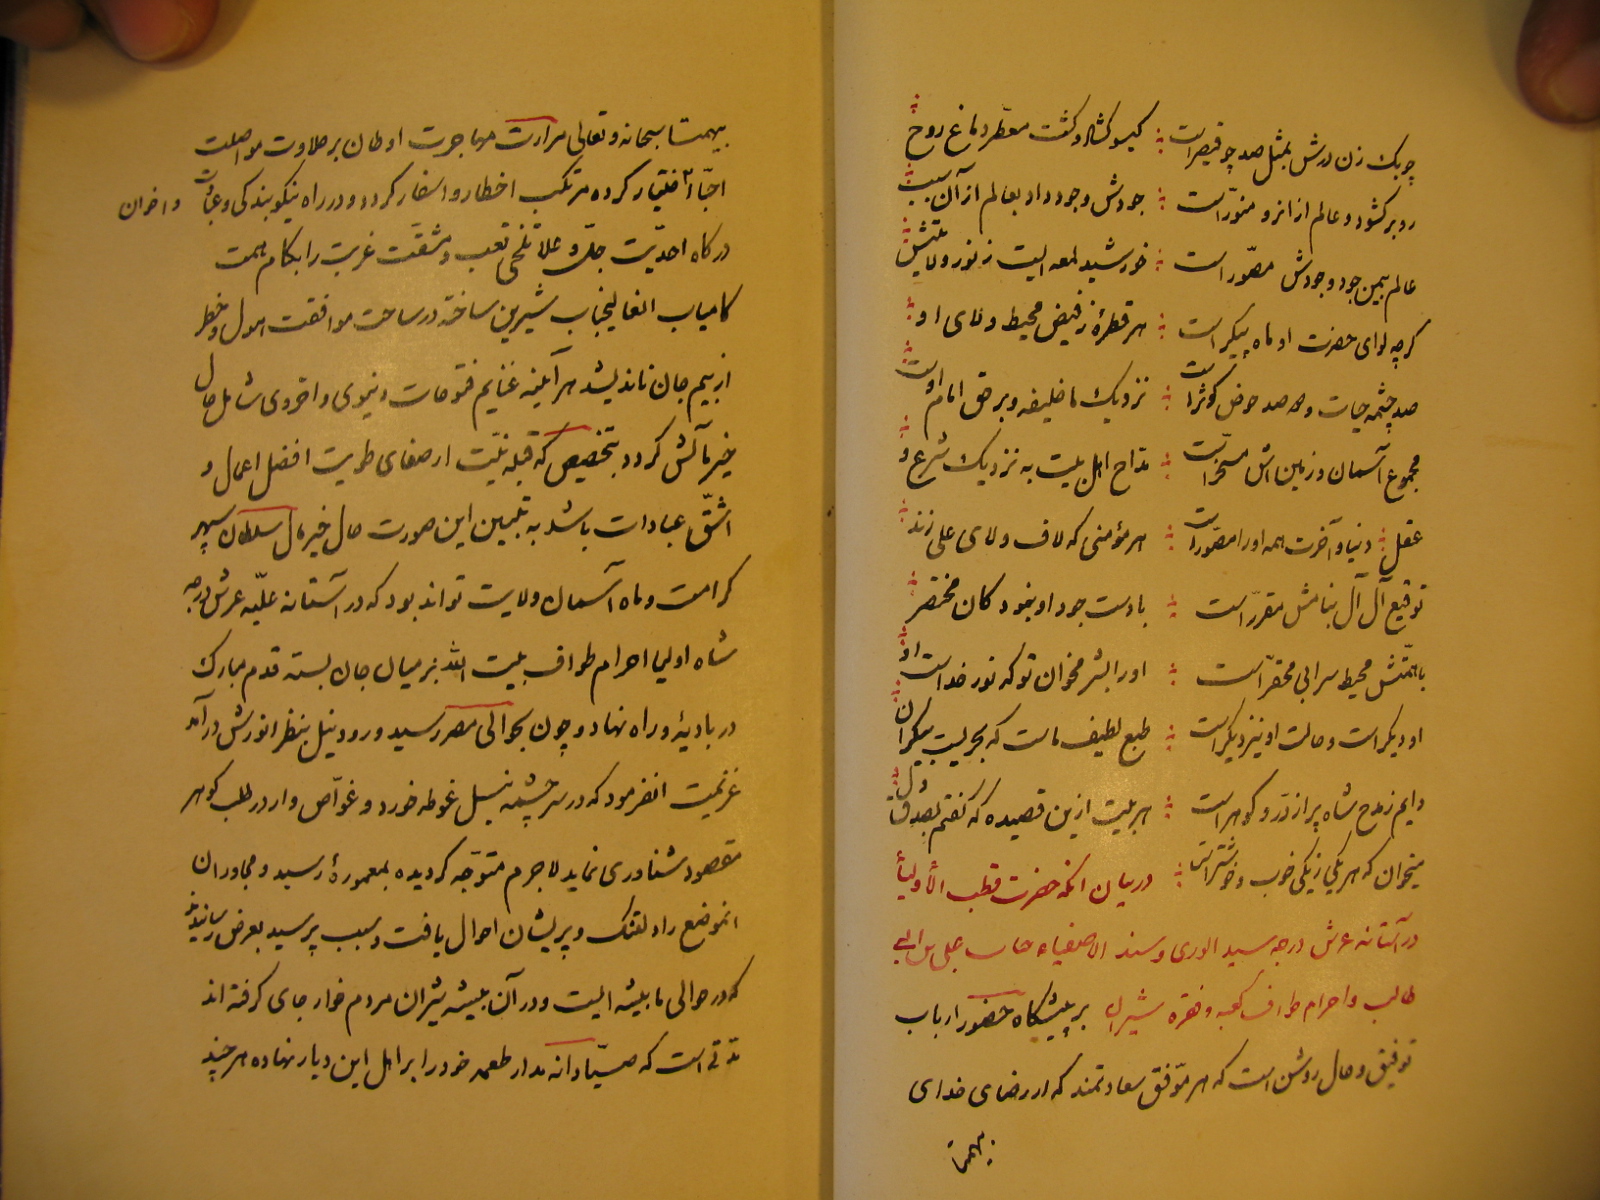 چوبک زن درش بمثل صد چو قیصر است ؞ گیسو گشاد و گشت معطر دماغ روح ؞
رو برکشود و عالم ازان رو منور است ؞ جودش وجود داد بعالم از آن سبب ؞
عالم بیمن جود وجودش مصور است ؞ خورشید لمعه ایست ز نور ولایتش ؞
کرچه لوای حضرت او ماه پیکر است ؞ هر قطرهٔ ز فیض محیط ولای او ؞
صد چشمه حیات و صد حوض کوثر است ؞ نزدیک ما خلیفه و بر حق امام اوست ؞
مجموع آسمان و زمین اش مسخر است ؞ مداح اهل بیت به نزدیک شرع و ؞
عقل ؞ دنیا و آخرت همه او را مصور است ؞ هر مؤمنی که لاف ولای علی زند ؞
توقیع آل آل بنامش مقرر است ؞ با دست جود او بنمود کان مختصر ؞
با همتش محیط سرابی محقر است ؞ او را بشر مخوان تو که نور خداست او ؞
او دیگر است و حالت او نیز دیگر است ؞ طبع لطیف ماست که بحریست بیکران ؞
دایم ز مدح شاه پر از در و گوهر است ؞ هر بیت ازین قصیده که گفتم بصدق دل ؞
میخوان که هر یکی ز یکی خوب و خوشتر است ؞ در بیان انکه حضرت قطب الأولیأ
در آستانه عرش درجه سید الوری و سند الاصفیاء علی بن ابی
طالب و احرام طواف کعبه و شیران بر پیشگاه حضور ارباب
توفیق و حال روشن است که هر موفق سعادتمند که از رضای خدای
بیهمتا
بیهمتا سبحانه و تعالی مرارت مهاجرت اوطان بر حلاوت مواصلت
احبا و اخوان اختیار کرده مرتکب اخطار و اسفار کردد و در راه نیکو بندکی
درکاه احدیت جل و علا تلخی تعب و مشقت غربت را بکام همت
کامیاب شیرین ساخته در ساحت موافقت اهوال و خطر
از بیم جان ناندیشد هر آینه غنایم فتوحات دنیوی و اخروی شامل حال
خیر مآلش کردد بتخصیص که قبله نیت از صفای طویت افضل اعمال و
اشق عبادات باشد به تبیین این صورت حال خیر مآل سلطان سپهر
کرامت و ماه آسمان ولایت تواند بود که در آستانه علیه عرش درجه
شاه اولیا احرام طواف بیت الله بر میان جان بسته قدم مبارک
در بادیهٔ و راه نهاد و چون بحوالی مصر رسید و رود نیل بنظر انورش درآمد
عزیمت انفرمود که در سرچشمه نیل غوطه خورد و غواص وار در طلب کوهر
مقصود شناوری نماید لاجرم متوجه کردیده بمعمورهٔ رسید و مجاوران
انموضع را دلتنک و پریشان احوال یافت و سبب پرسید بعرض رسانیدند
که در حوالی ما بیشه ایست و در آن بیشه شیران مردم خوار جای کرفته اند
مدتی است که صیادانه مدار طعمه خود را بر اهل این دیار نهاده هر چند